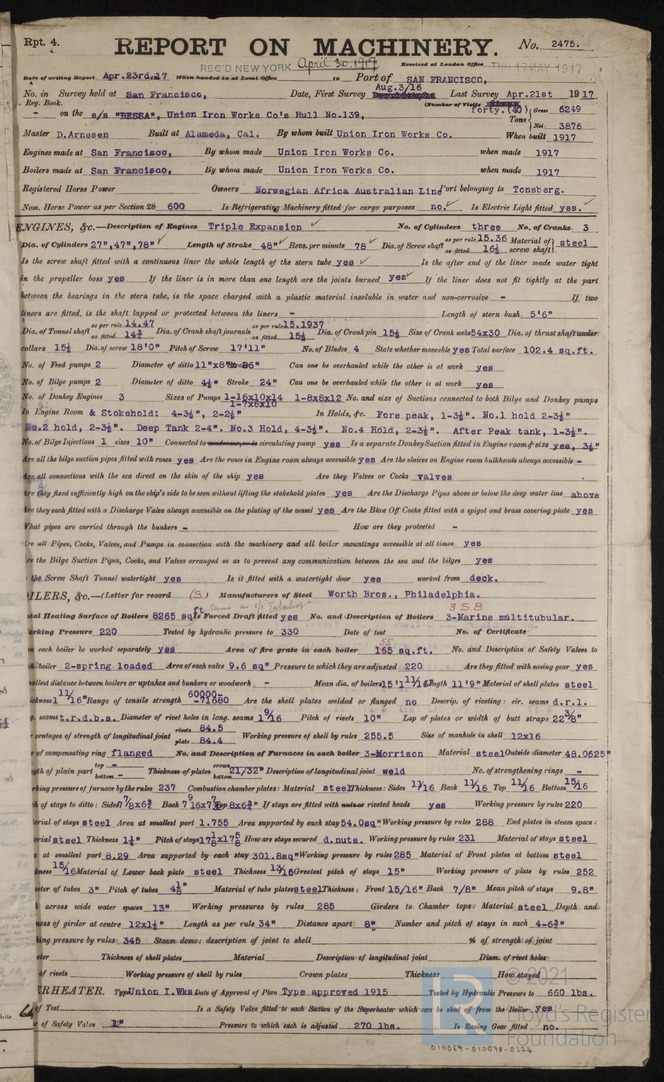 Rpt. 4. REPORT ON MACHINERY. No. 2475.
REC'D NEW YORK April 30. 1917 Received at London Office THU 17 MAY 1917
Date of writing Report Apr.23rd.17 When handed in at Local Office 10 Port of SAN FRANCISCO,
No. in Survey held at San Francisco, Date, First Survey Aug.3/16 Last Survey Apr.21st 1917
Reg. Book. (Number of Visits forty.(40)
- on the s/s "BESSA", Union Iron Works Co's Hull No.139, Tons Gross 6249 Net 3876
Master D.Arnesen Built at Alameda, Cal. By whom built Union Iron Works Co. When built 1917
Engines made at San Francisco, By whom made Union Iron Works Co. when made 1917
Boilers made at San Francisco, By whom made Union Iron Works Co. when made 1917
Registered Horse Power Owners Norwegian Africa Australian Line Port belonging to Tonsberg.
Nom. Horse Power as per Section 28 600 Is Refrigerating Machinery fitted for cargo purposes no. Is Electric Light fitted yes.
ENGINES, &c.—Description of Engines Triple Expansion No. of Cylinders three No. of Cranks 3
Dia. of Cylinders 27",47",78" Length of Stroke 48" Revs. per minute 78 Dia. of Screw shaft as per rule 15.36 as fitted 16½ Material of screw shaft steel
Is the screw shaft fitted with a continuous liner the whole length of the stern tube yes Is the after end of the liner made water tight
in the propeller boss yes If the liner is in more than one length are the joints burned yes If the liner does not fit tightly at the part
between the bearings in the stern tube, is the space charged with a plastic material insoluble in water and non-corrosive - If two
liners are fitted, is the shaft lapped or protected between the liners - Length of stern bush 5'6"
Dia. of Tunnel shaft as per rule 14.47 as fitted 14¾ Dia. of Crank shaft journals as per rule 15.1937 as fitted 15½ Dia. of Crank pin 15½ Size of Crank webs 54x30 Dia. of thrust shaft under
collars 15½ Dia. of screw 18'0" Pitch of Screw 17'11" No. of Blades 4 State whether moveable yes Total surface 102.4 sq.ft.
No. of Feed pumps 2 Diameter of ditto Can one be overhauled while the other is at work yes
No. of Bilge pumps 2 Diameter of ditto 4½" Stroke 24" Can one be overhauled while the other is at work yes
No. of Donkey Engines 3 Sizes of Pumps 1-16x10x14 1-7x6x10 1-8x8x12 No. and size of Suctions connected to both Bilge and Donkey pumps
In Engine Room & Stokehold: 4-3½", 2-2½" In Holds, &c. Fore peak, 1-3½". No.1 hold 2-3½"
No.2 hold, 2-3½". Deep Tank 2-4". No.3 Hold, 4-3½". No.4 Hold, 2-3½". After Peak tank, 1-3½".
No. of Bilge Injections 1 sizes 10" Connected to circulating pump yes Is a separate Donkey Suction fitted in Engine room & size yes, 3½"
Are all the bilge suction pipes fitted with roses yes Are the roses in Engine room always accessible yes Are the sluices on Engine room bulkheads always accessible -
Are all connections with the sea direct on the skin of the ship yes Are they Valves or Cocks valves
Are they fixed sufficiently high on the ship's side to be seen without lifting the stokehold plates yes Are the Discharge Pipes above or below the deep water line above
Are they each fitted with a Discharge Valve always accessible on the plating of the vessel yes Are the Blow Off Cocks fitted with a spigot and brass covering plate yes
What pipes are carried through the bunkers - How are they protected -
Are all Pipes, Cocks, Valves, and Pumps in connection with the machinery and all boiler mountings accessible at all times yes
Are the Bilge Suction Pipes, Cocks, and Valves arranged so as to prevent any communication between the sea and the bilges yes
the Screw Shaft Tunnel watertight yes Is it fitted with a watertight door yes worked from deck.
OILERS, &c.—(Letter for record (S.) Manufacturers of Steel Worth Bros., Philadelphia.
3 S.B.
tal Heating Surface of Boilers 8265 sq.ft Forced Draft fitted yes No. and Description of Boilers 3-Marine multitubular.
orking Pressure 220 Tested by hydraulic pressure to 330 Date of test No. of Certificate
n each boiler be worked separately yes Area of fire grate in each boiler 165 sq.ft. No. and Description of Safety Valves to
boiler 2-spring loaded Area of each valve 9.6 sq" Pressure to which they are adjusted 220 Are they fitted with easing gear yes
allest distance between boilers or uptakes and bunkers or woodwork - Mean dia. of boilers 15'1 11/16 Length 11'9" Material of shell plates steel
ickness 1 11/16" Range of tensile strength 60000-71680 Are the shell plates welded or flanged no Descrip. of riveting: cir. seams d.r.l.
g. seams t.r.d.b.s. Diameter of rivet holes in long. seams 1 9/16 Pitch of rivets 10" Lap of plates or width of butt straps 22⅜"
ercentages of strength of longitudinal joint rivets 84.5 plate 84.4 Working pressure of shell by rules 255.5 Size of manhole in shell 12x16
of compensating ring flanged No. and Description of Furnaces in each boiler 3-Morrison Material steel Outside diameter 48.0625"
gth of plain part top - bottom - Thickness of plates crown bottom 21/32" Description of longitudinal joint weld No. of strengthening rings -
king pressure of furnace by the rules 237 Combustion chamber plates: Material steel Thickness: Sides 11/16 Back 11/16 Top 11/16 Bottom 15/16
h of stays to ditto: Sides Back Top If stays are fitted with nuts or riveted heads yes Working pressure by rules 220
erial of stays steel Area at smallest part 1.755 Area supported by each stay 54.0sq" Working pressure by rules 288 End plates in steam space:
erial steel Thickness 1¼" Pitch of stays How are stays secured d.nuts. Working pressure by rules 231 Material of stays steel
a at smallest part 8.29 Area supported by each stay 301.8sq" Working pressure by rules 285 Material of Front plates at bottom steel
kness 15/16 Material of Lower back plate steel Thickness 13/16 Greatest pitch of stays 15" Working pressure of plate by rules 252
eter of tubes 3" Pitch of tubes 4⅛" Material of tube plates steel Thickness: Front 15/16" Back 7/8" Mean pitch of stays 9.8"
across wide water spaces 13" Working pressures by rules 285 Girders to Chamber tops: Material steel Depth and
ness of girder at centre 12x1¼" Length as per rule 34" Distance apart 8" Number and pitch of stays in each 4-6¾"
king pressure by rules 345 Steam dome: description of joint to shell % of strength of joint
eter Thickness of shell plates Material Description of longitudinal joint Diam. of rivet holes
of rivets Working pressure of shell by rules Crown plates Thickness How stayed
ERHEATER. Type Union I.Wks Date of Approval of Plan Type approved 1915 Tested by Hydraulic Pressure to 660 lbs.
of Test Is a Safety Valve fitted to each Section of the Superheater which can be shut off from the Boiler yes
r of Safety Valve 1" Pressure to which each is adjusted 270 lbs. Is Easing Gear fitted no.
© 2021
Lloyd's Register
Foundation
010069-010078-0226